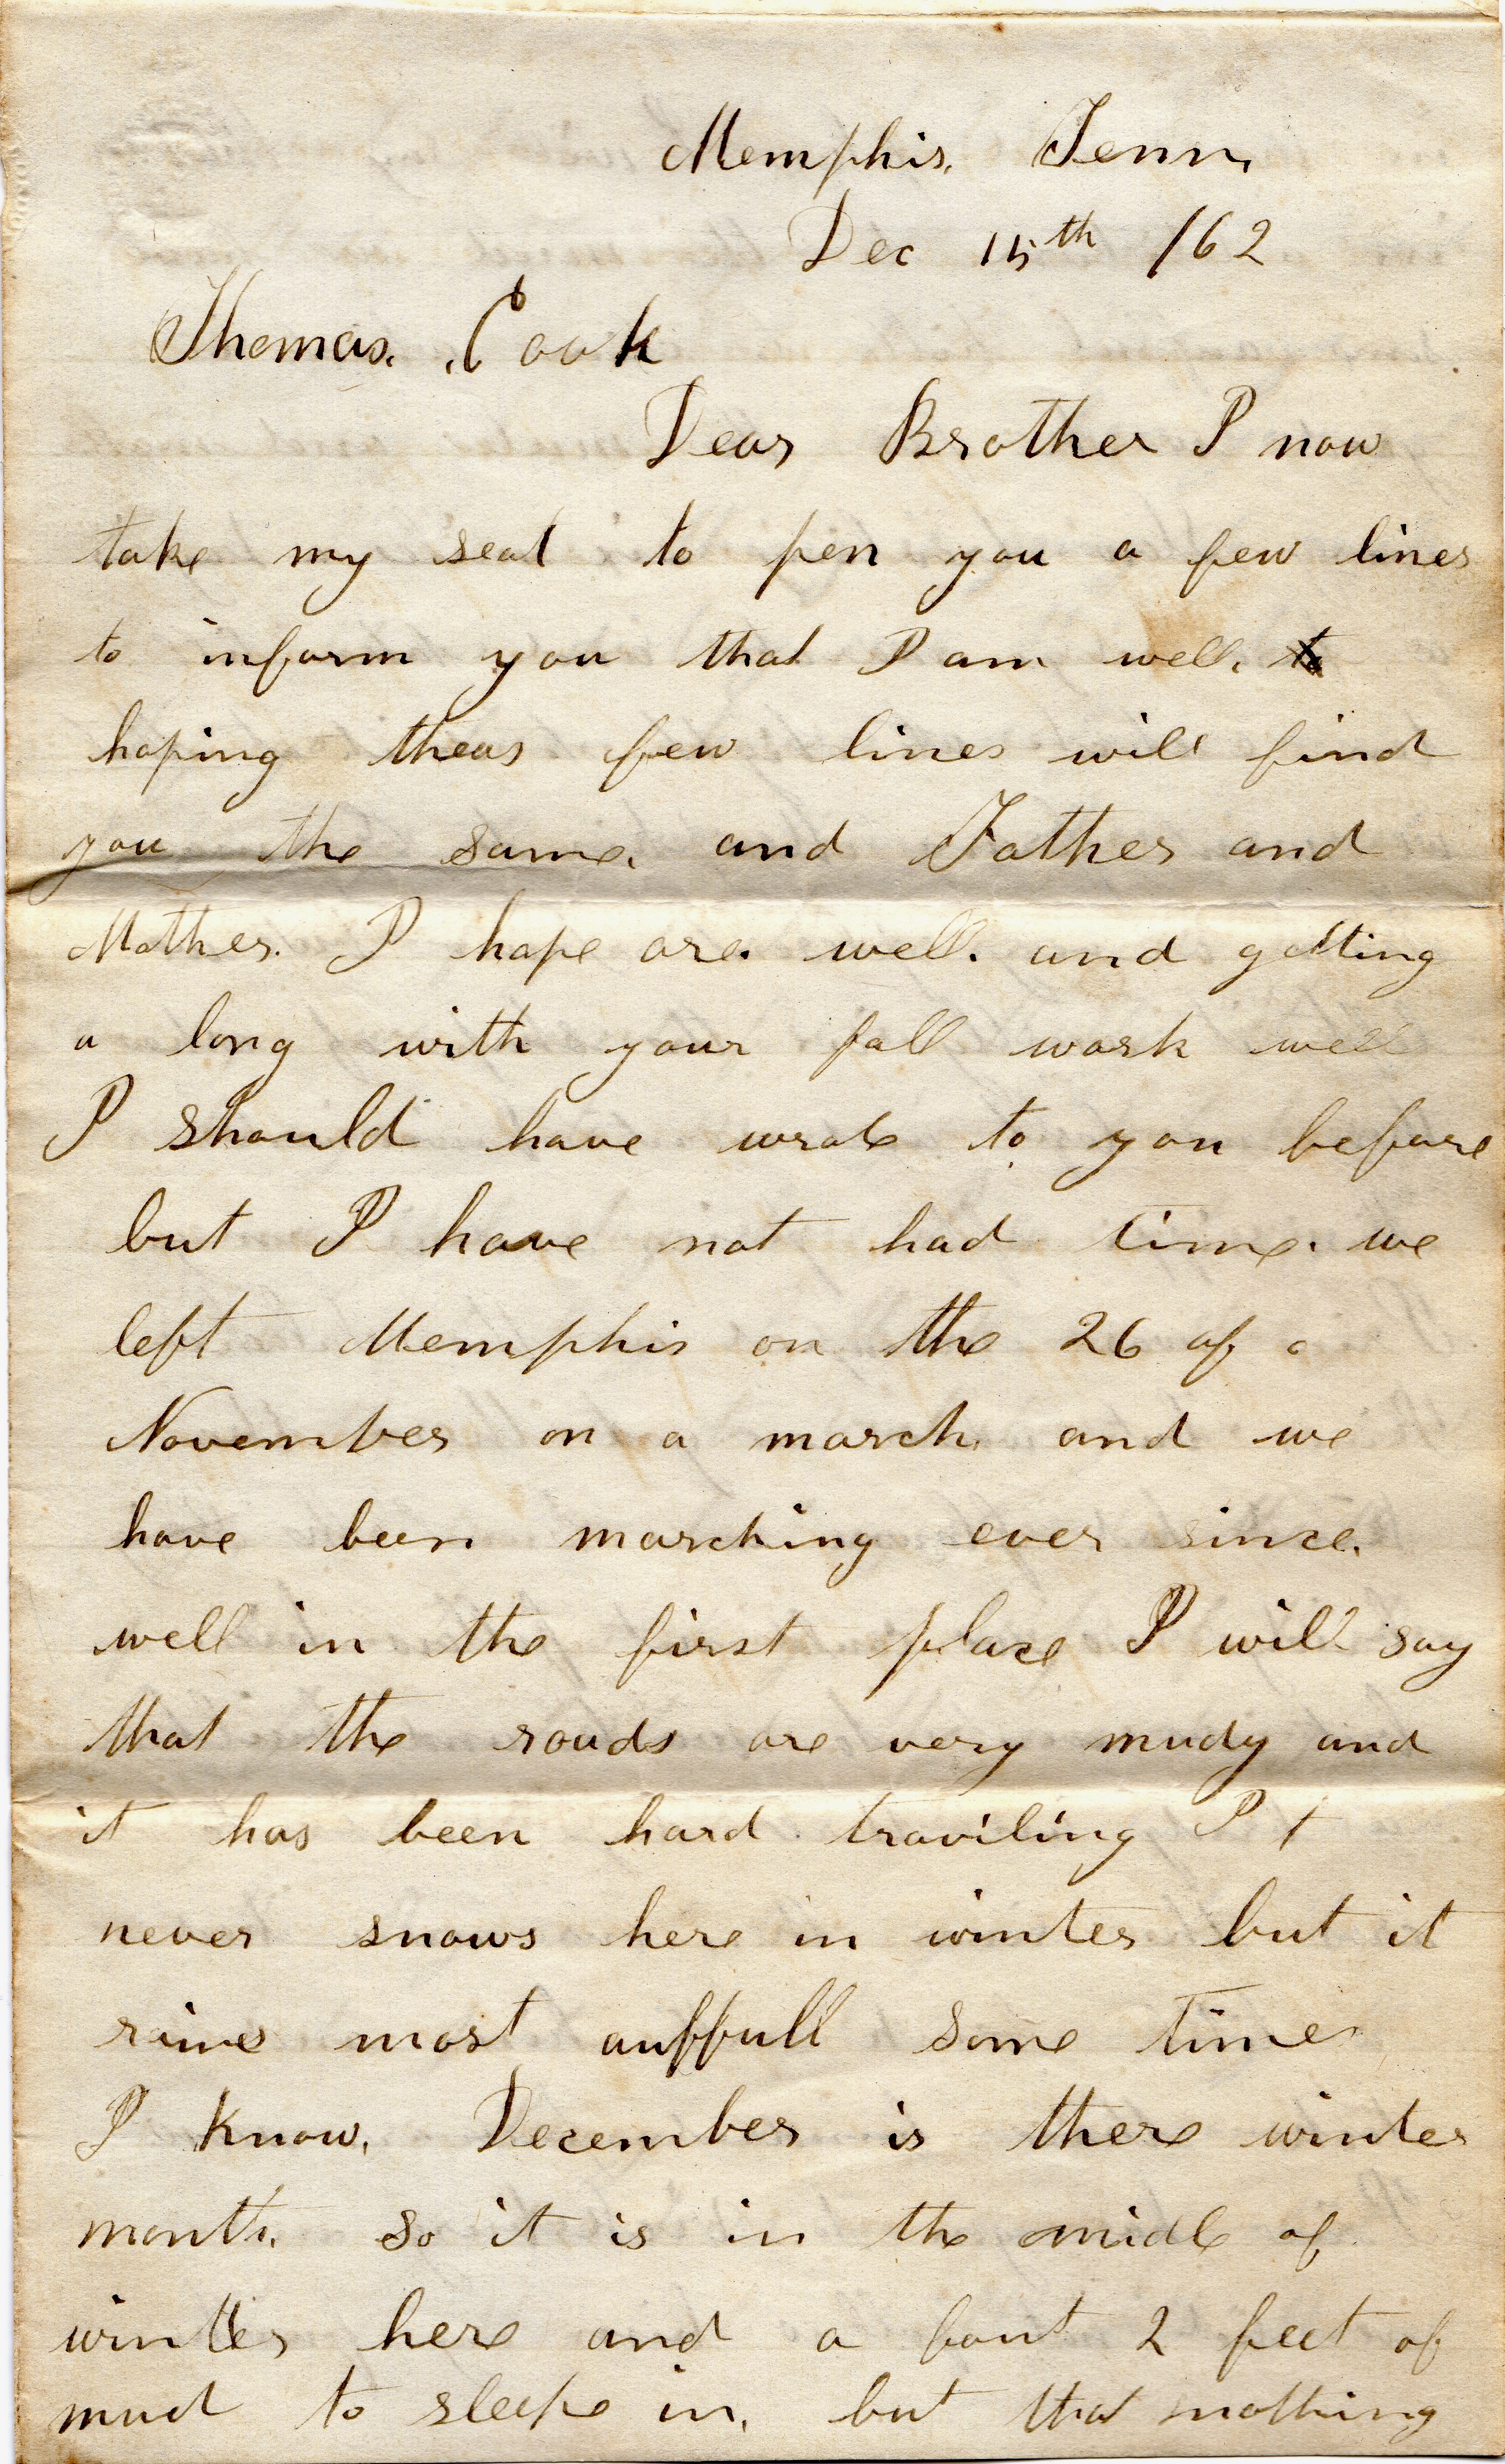 Memphis. Tenn.
Dec 15th /62
Thomas. Cook
Dear Brother I now
take my seat to pen you a few lines
to inform you that I am well. to
hoping theas few lines will find
you the same. and Father and
Mother. I hope are. well. and getting
a long with your fall work well
I should have wrote to you before
but I have not had time. we
left Memphis on the 26 of
November on a march. and we
have been marching ever since.
well in the first place I will say
that the roads are very mudy and
it has been hard traviling It
never snows here in winter but it
raines most auffull some times
I know. December is there winter
month. so it is in the midle of
winter here and a bout 2 feet of
mud to sleepe in. but that nothing